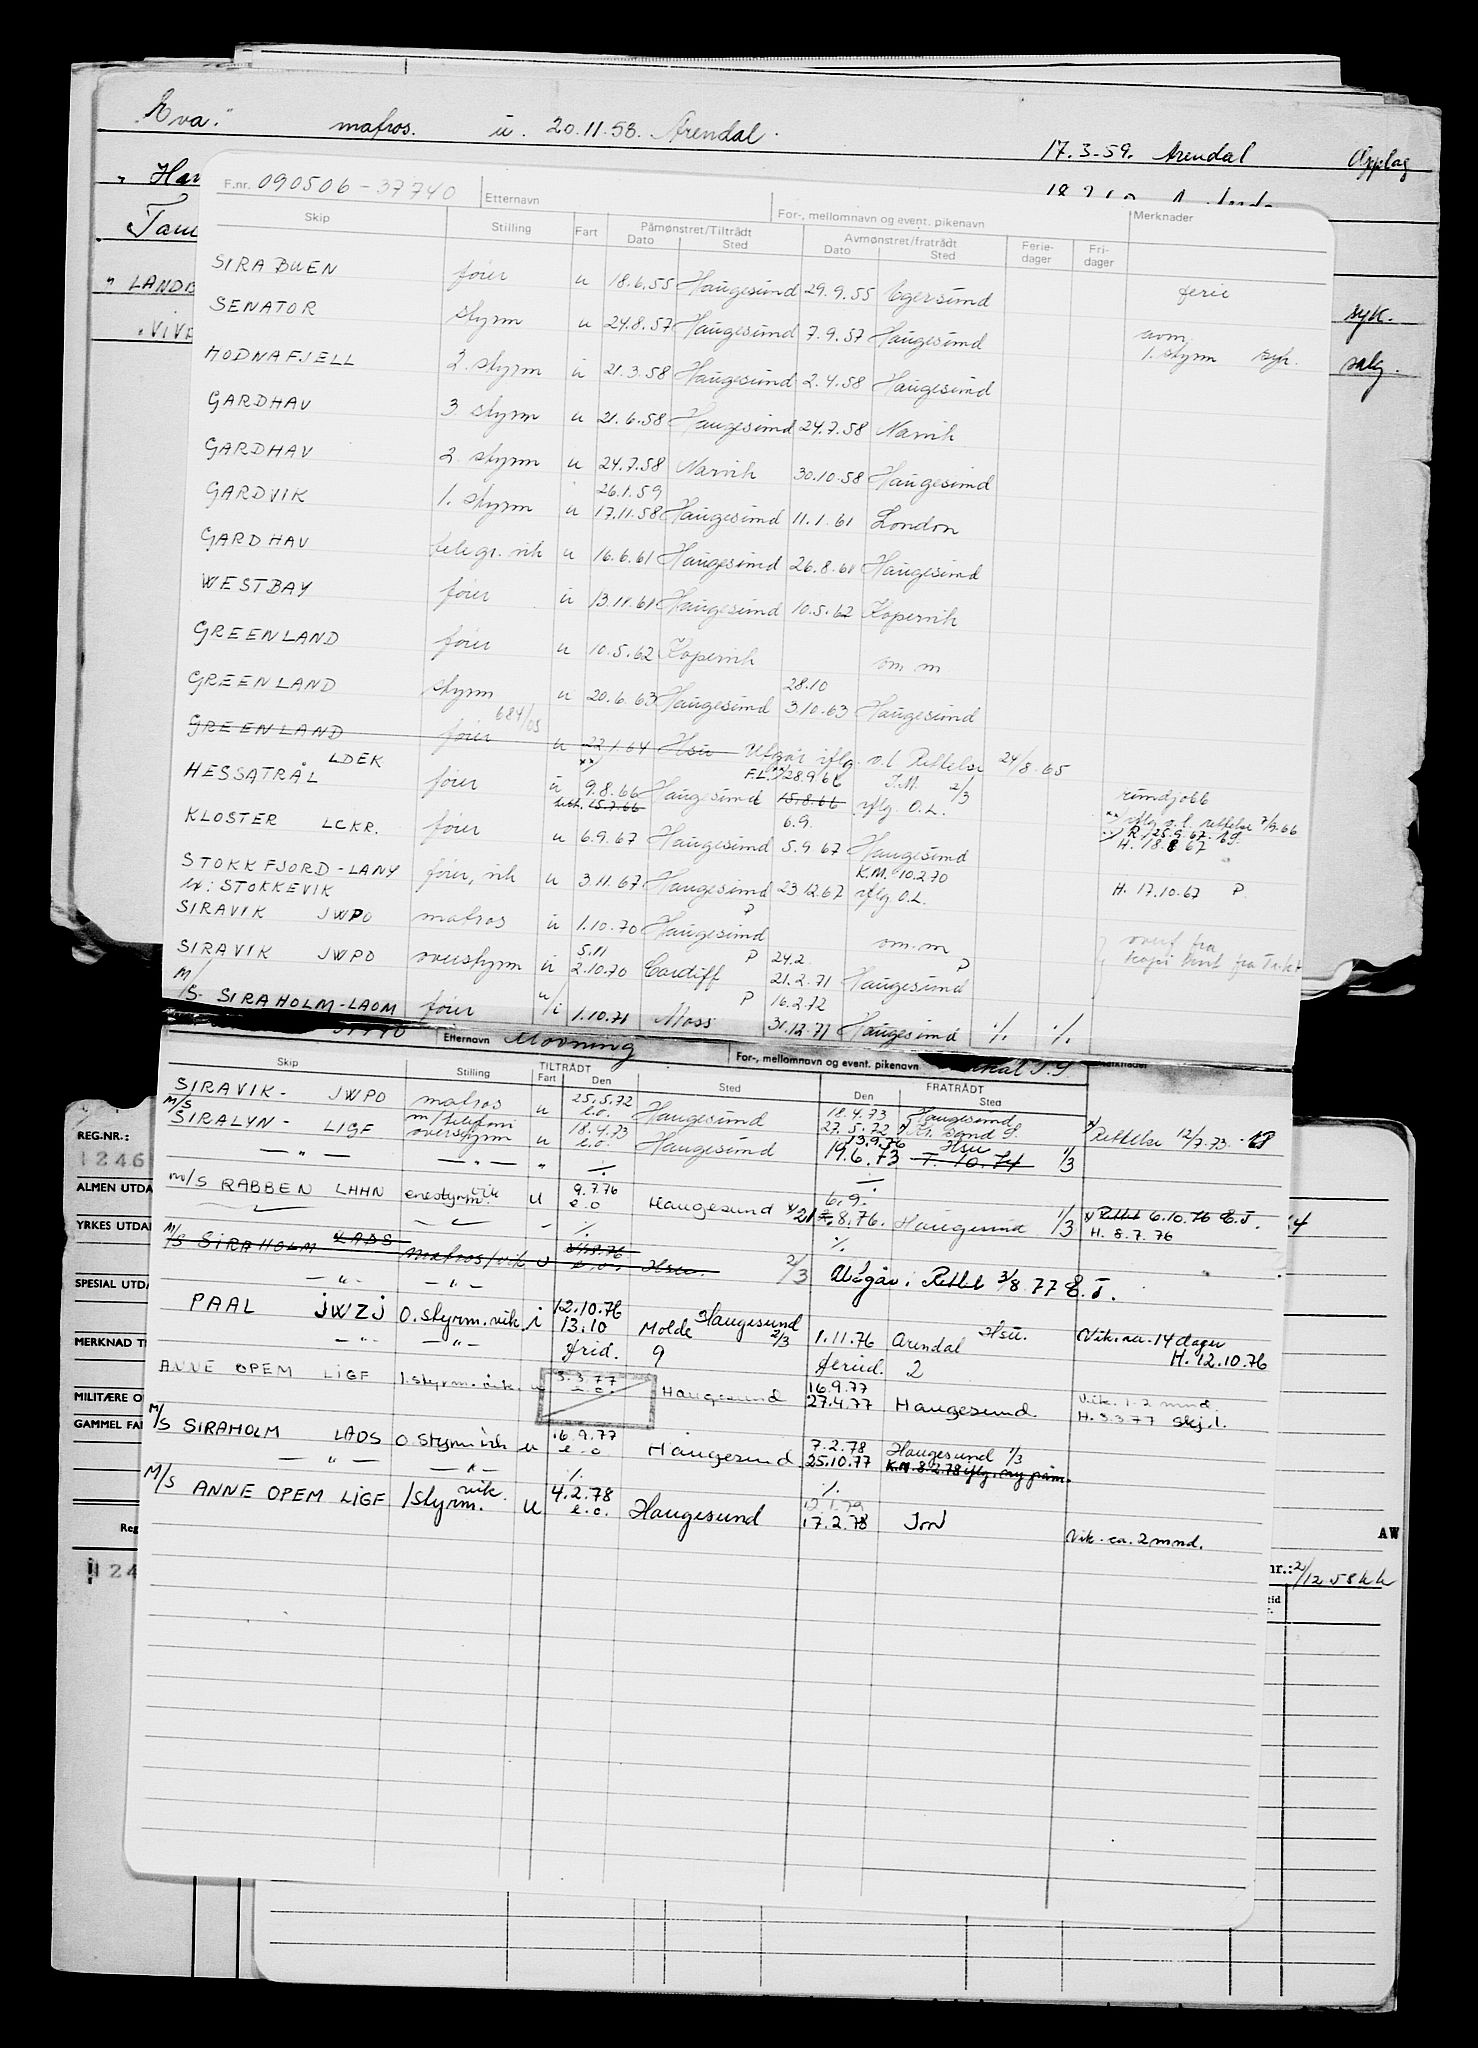 "Eva." matros. u. 20.11.58. Arendal. 17.3.59. Arendal Opplag
" Har
Tam
" LANDB syk.
" VIVA salg.
F.nr. 090506-37740 Etternavn For-, mellomnavn og event. pikenavn Merknader
Skip Stilling Fart Påmønstret/Tiltrådt Dato Sted Avmønstret/fratrådt Dato Sted Ferie-dager Fri-dager
SIRABUEN fører u 18.6.55 Haugesund 29.9.55 Egersund ferie
SENATOR styrm u 24.8.57 Haugesund 7.9.57 Haugesund avm. 1. styrm syk.
HODNAFJELL 2. styrm u 21.3.58 Haugesund 2.4.58 Haugesund
GARDHAV 3 styrm u 21.6.58 Haugesund 24.7.58 Narvik
GARDHAV 2. styrm u 24.7.58 Narvik 30.10.58 Haugesund
26.1.59
GARDVIK 1. styrm u 17.11.58 Haugesund 11.1.61 London
GARDHAV telegr. vik u 16.6.61 Haugesund 26.8.61 Haugesund
WESTBAY fører u 13.11.61 Haugesund 10.5.62 Kopervik
GREENLAND fører u 10.5.62 Kopervik om.m
28.10
GREENLAND styrm u 20.6.63 Haugesund 3.10.63 Haugesund
684/05
GREENLAND fører u 22.1.64 Hsu Utgår iflg. o.l Rettelse 24/8.65
LDEK F.L. 28.9.66 J.M. 2/3
HESSATRÅL fører u 9.8.66 Haugesund 15.8.66 iflg. O.L. rundjobb
rett. 15.7.66 6.9. xx) iflg o.l. rettelse 7/9.66
R. 25.9.67.
KLOSTER LCKR. fører u 6.9.67 Haugesund 5.9.67 Haugesund H. 18.8 67
K.M. 10.2.70
STOKKFJORD-LANY fører, vik u 3.11.67 Haugesund 23.12.67 iflg O.L. H. 17.10.67 P
ex: STOKKEVIK
SIRAVIK JWPO matros u 1.10.70 Haugesund P om.m overf fra
5.11 24.2.
SIRAVIK JWPO overstyrm u 2.10.70 Cardiff P 21.2.71 Haugesund P
16.2.72
M/S. SIRAHOLM-LAOM fører u/i 1.10.71 Moss P 31.12.71 Haugesund ./. ./.
37740 Etternavn Movning For-, mellomnavn og event. pikenavn Merknader
Skip Stilling TILTRÅDT Fart Den Sted FRATRÅDT Den Sted
SIRAVIK- JWPO matros u 25.5.72 e.o. Haugesund 18.4.73 Haugesund
27.5.72 Kr. sand S. x) Rettelse 12/7.73.
M/S SIRALYN- LIGF m/telefoni overstyrm u 18.4.73 e.o. Haugesund 13.9.76 Hsu
19.6.73 T. 10.74 1/3
— " — — " — " ./. ./.
m/s RABBEN LHHN enestyrm. vik u 9.7.76 e.o Haugesund 6.9. 21.8.76. Haugesund 1/3 x) Rettet 6.10.76 E.J.
H. 8.7.76
M/S SIRAHOLM LADS matros/vik u Hsu. 2/3 Utgår: Rettet 3/8.77 E.J.
— " — — " —
PAAL JWZJ O.styrm.vik. i 12.10.76 Haugesund
13.10 Molde 2/3 1.11.76 Arendal Hsu. Vik. ca. 14 dager
— " — — " — frid. 9 feried. 2 H. 12.10.76
ANNE OPEM LIGF 1.styrm.vik. u 3.3.77 e.o. Haugesund 16.9.77
27.4.77 Haugesund. Vik. 1-2 mnd.
H. 3.3.77 Skj.1.
M/S SIRAHOLM LADS O.styrm.vik u 16.9.77 e.o Haugesund 7.2.78 Haugesund 1/3
25.10.77 K.M. 8.2.78 iflg. ny påm.
— " — — " — ./. ./.
M/S ANNE OPEM LIGF 1styrm. vik. u 4.2.78 e.o. Haugesund 17.2.78 Vik. ca. 2 mnd.
REG.NR.:
1246
ALMEN UTDA
YRKES UTDA
SPESIAL UTDA
MERKNAD T
MILITÆRE O
GAMMEL FA
Reg
124
AW
nr.: 2/12 58 kk